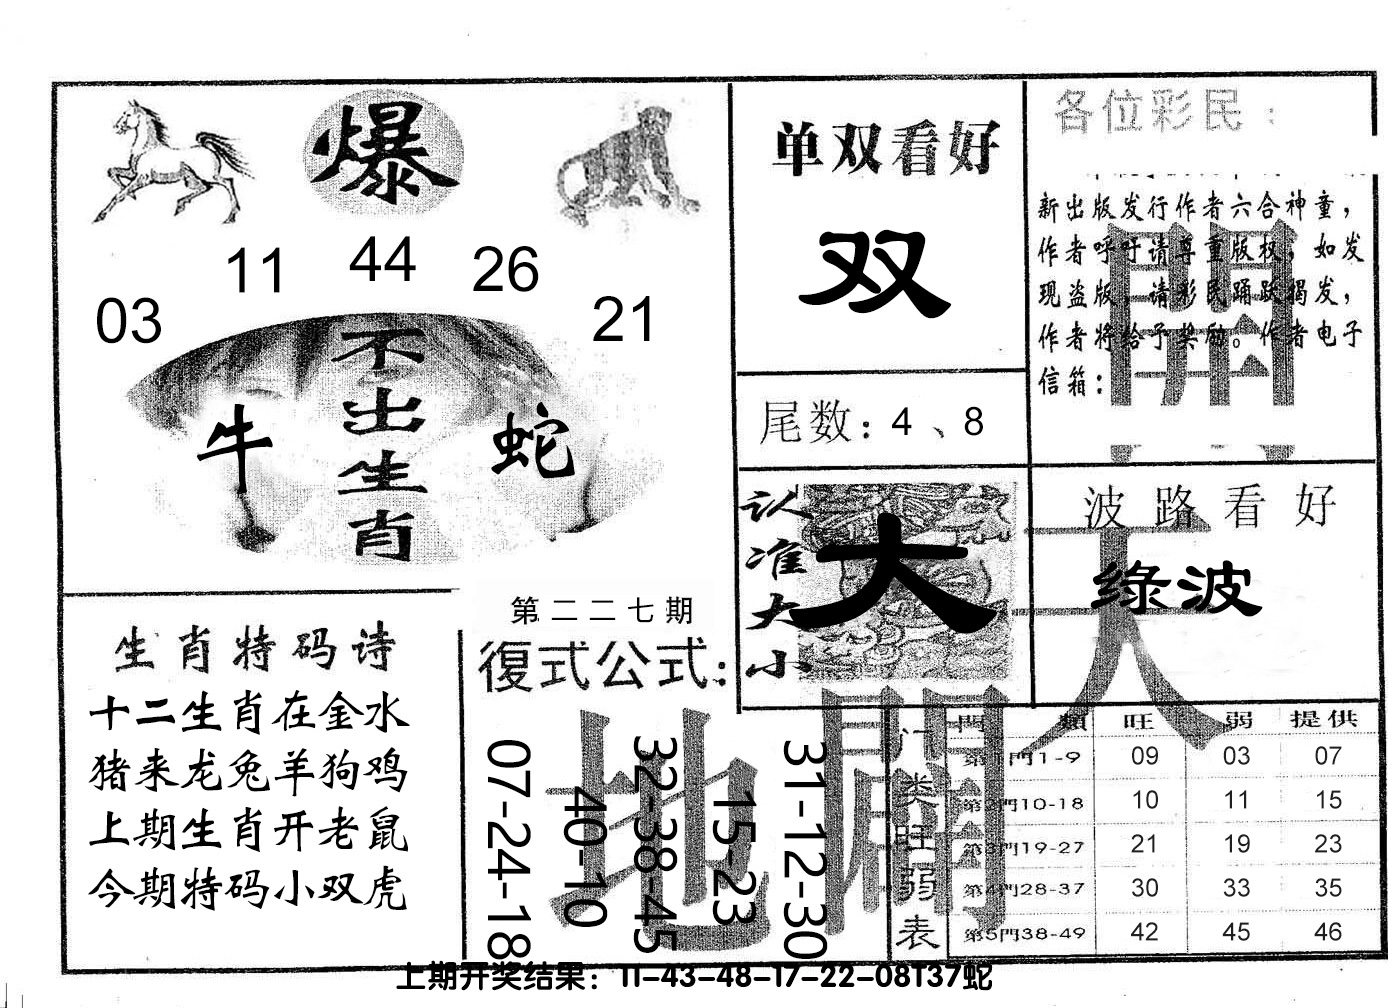 爆
11 44 26
03 21
不出生肖
牛 蛇
单双看好
双
尾数：4、8
各位彩民：
新出版发行作者六合神童，
作者呼吁请尊重版权，如发
现盗版，请彩民踊跃揭发，
作者将给予奖励。作者电子
信箱：
認准大小
大
波路看好
綠波
天
開
生肖特码诗
十二生肖在金水
猪来龙兔羊狗鸡
上期生肖开老鼠
今期特码小双虎
第二二七期
復式公式：
07-24-18
40-10
32-38-45
15-23
31-12-30
地
門类旺弱表
門類 旺 弱 提供
第1門1-9 09 03 07
第2門10-18 10 11 15
第3門19-27 21 19 23
第4門28-37 30 33 35
第5門38-49 42 45 46
上期开奖结果：11-43-48-17-22-08T37蛇